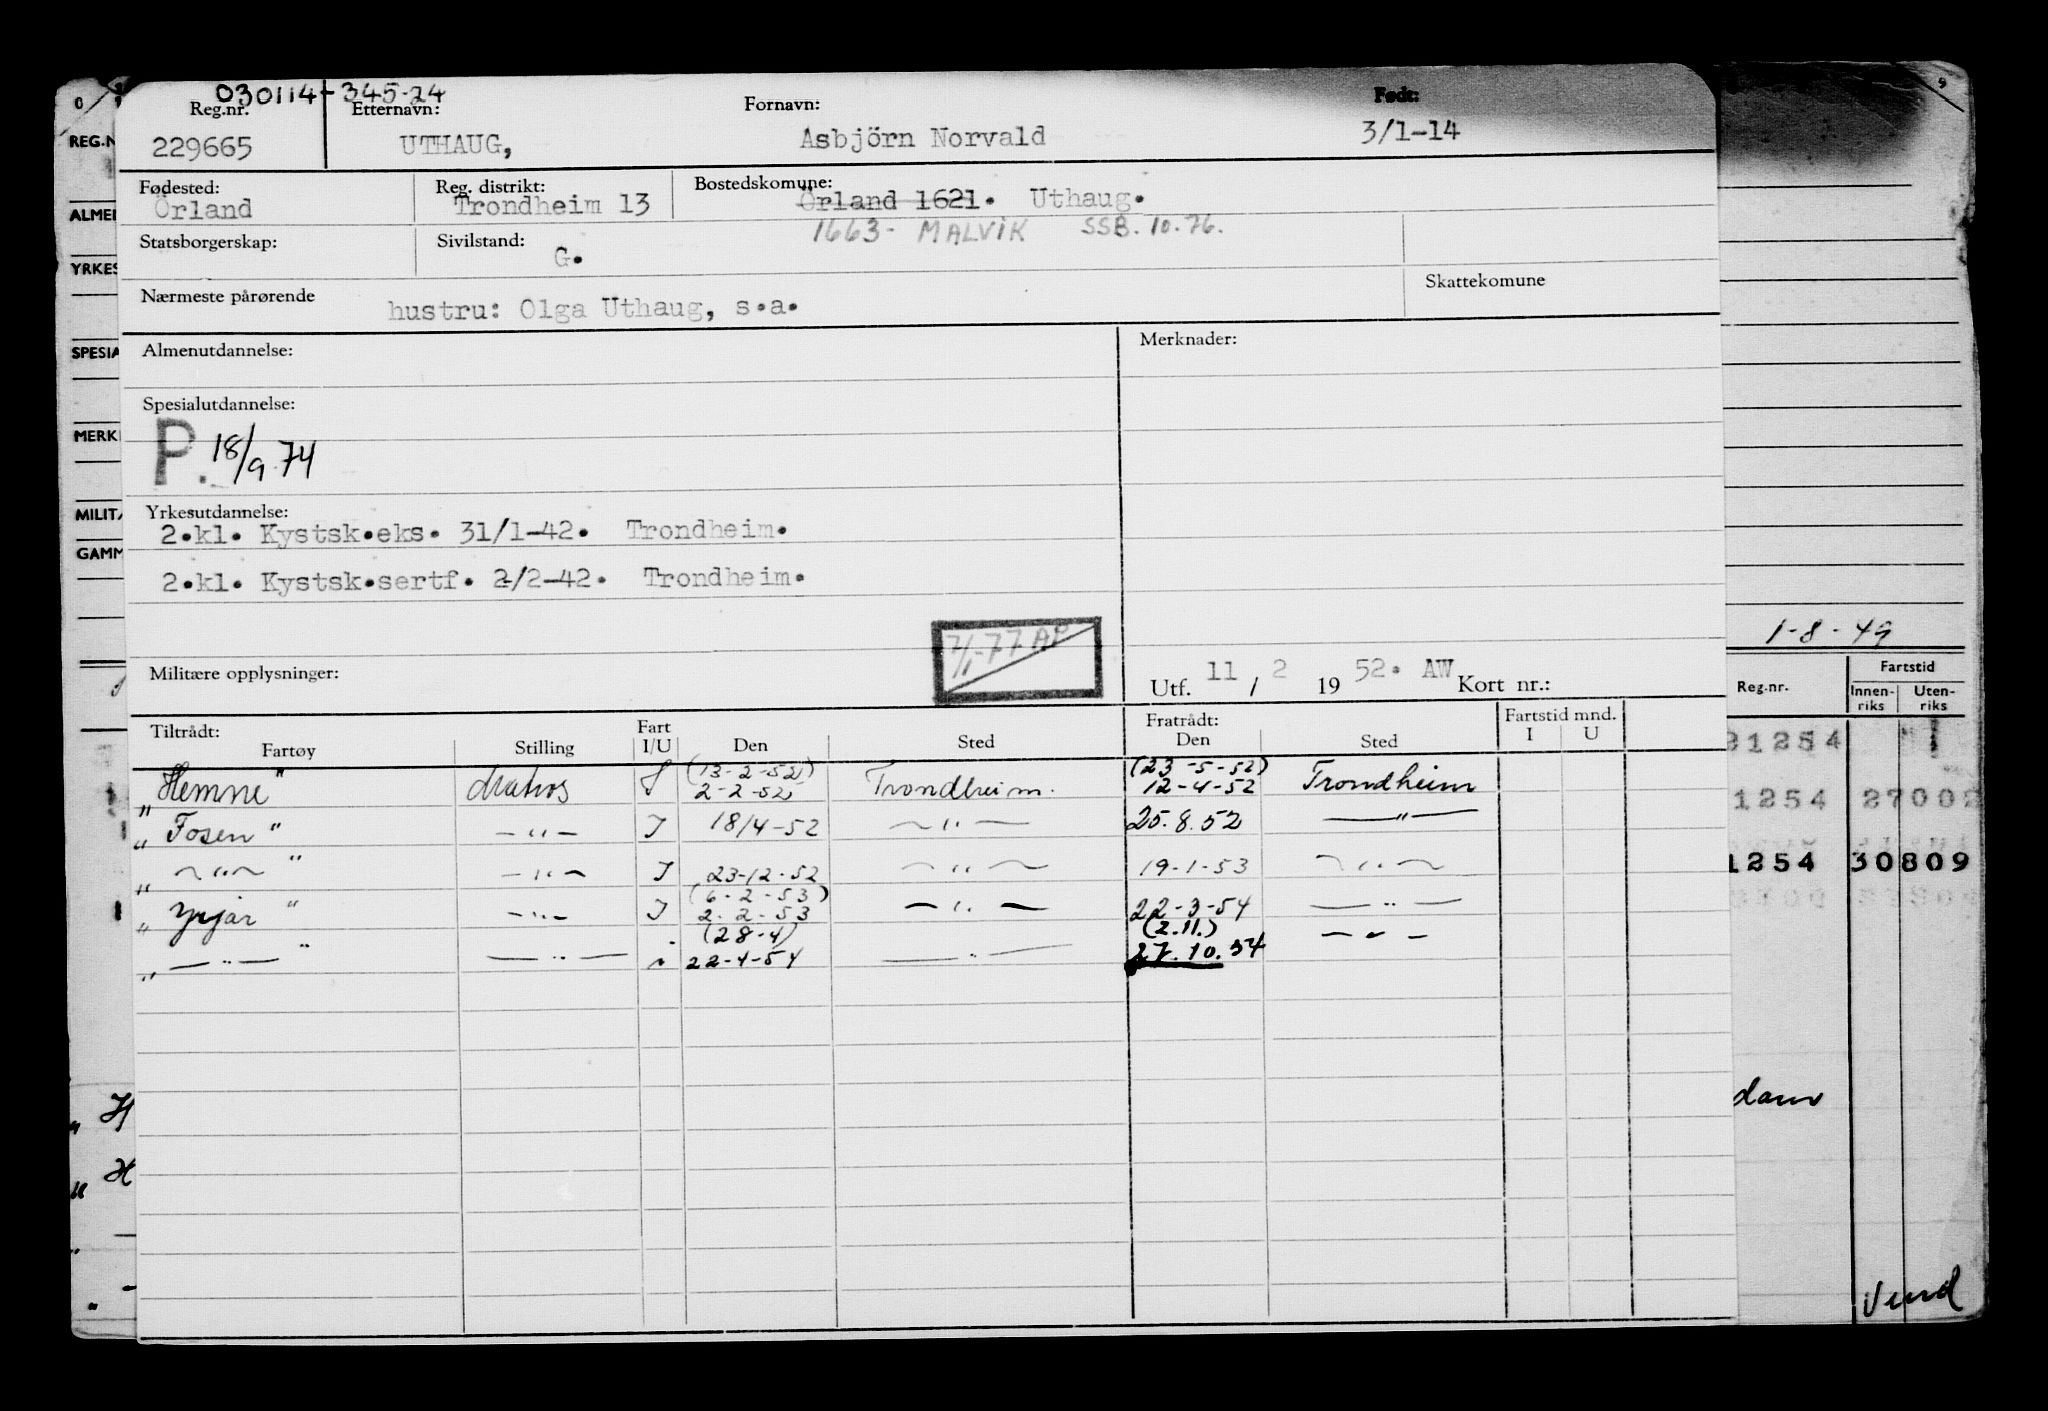 030114-345-24
Reg.nr. Etternavn: Fornavn: Født:
229665 UTHAUG, Asbjörn Norvald 3/1-14
Fødested: Reg. distrikt: Bostedskomune:
Örland Trondheim 13 Örland 1621. Uthaug.
1663- MALVIK SSB. 10.76.
Statsborgerskap: Sivilstand: G.
Nærmeste pårørende hustru: Olga Uthaug, s.a. Skattekomune
Almenutdannelse: Merknader:
Spesialutdannelse:
P. 18/9.74
Yrkesutdannelse:
2.kl. Kystsk.eks. 31/1-42. Trondheim.
2.kl. Kystsk.sertf. 2/2-42. Trondheim.
7/1-77 AP
Militære opplysninger: Utf. 11 / 2 1952. AW Kort nr.:
Tiltrådt: Fart Fratrådt: Fartstid mnd.
Fartøy Stilling I/U Den Sted Den Sted I U
(13-2-52) (23-5-52)
„Hemne" Matros I 2-2-52 Trondheim. 12-4-52 Trondheim
„Fosen" —"— I 18/4-52 —"— 25.8.52 —"—
„—"—" —"— I 23-12-52 —"— 19-1-53 —"—
(6-2-53)
„Yrjar" —"— I 2-2-53 —"— 22-3-54 —"—
(28-4) (2.11.)
„—"—" —"— i 22-4-54 —"— 27.10.54 —"—
REG.N
ALMEN
YRKES
SPESIA
MERK
MILIT
GAMM
1-8-49
Reg.nr. Fartstid
Innen-riks Uten-riks
1254
1254 27002
1254 30809
dam
Vend